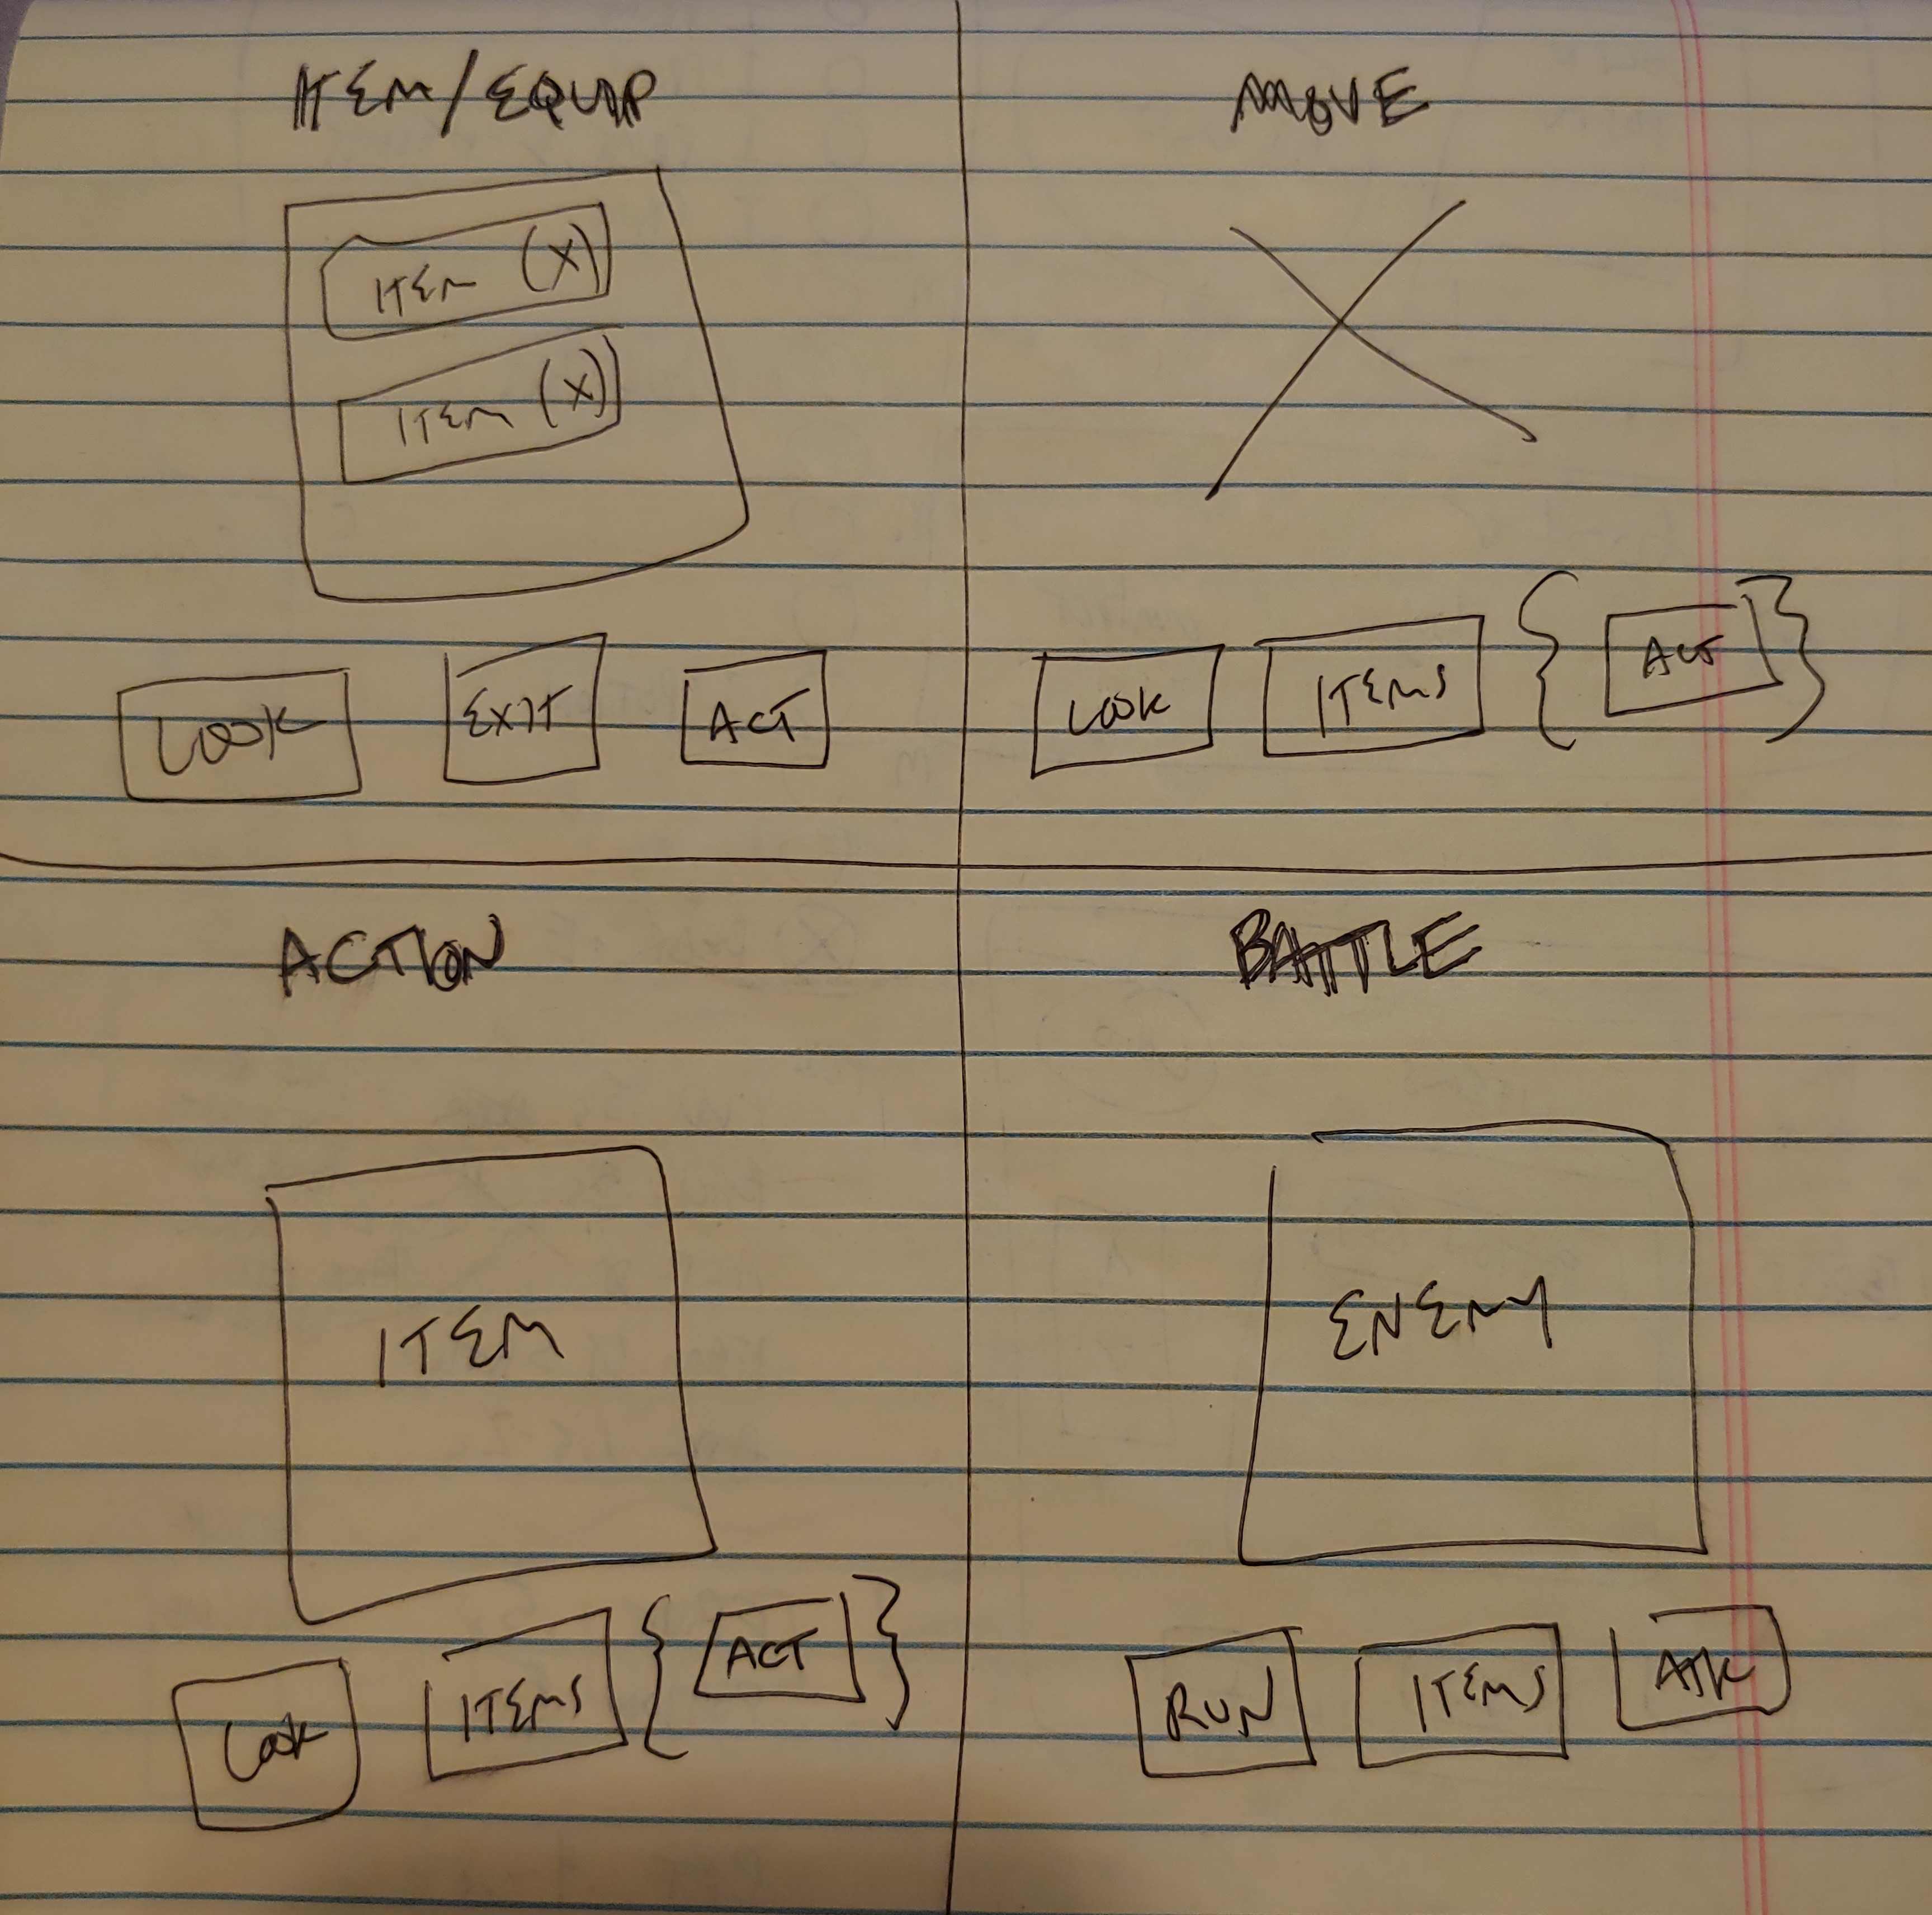 ITEM/EQUIP
ITEM (X)
ITEM (X)
LOOK EXIT ACT
MOVE
LOOK ITEMS { ACT }
ACTION
ITEM
LOOK ITEMS { ACT }
BATTLE
ENEMY
RUN ITEMS ATK